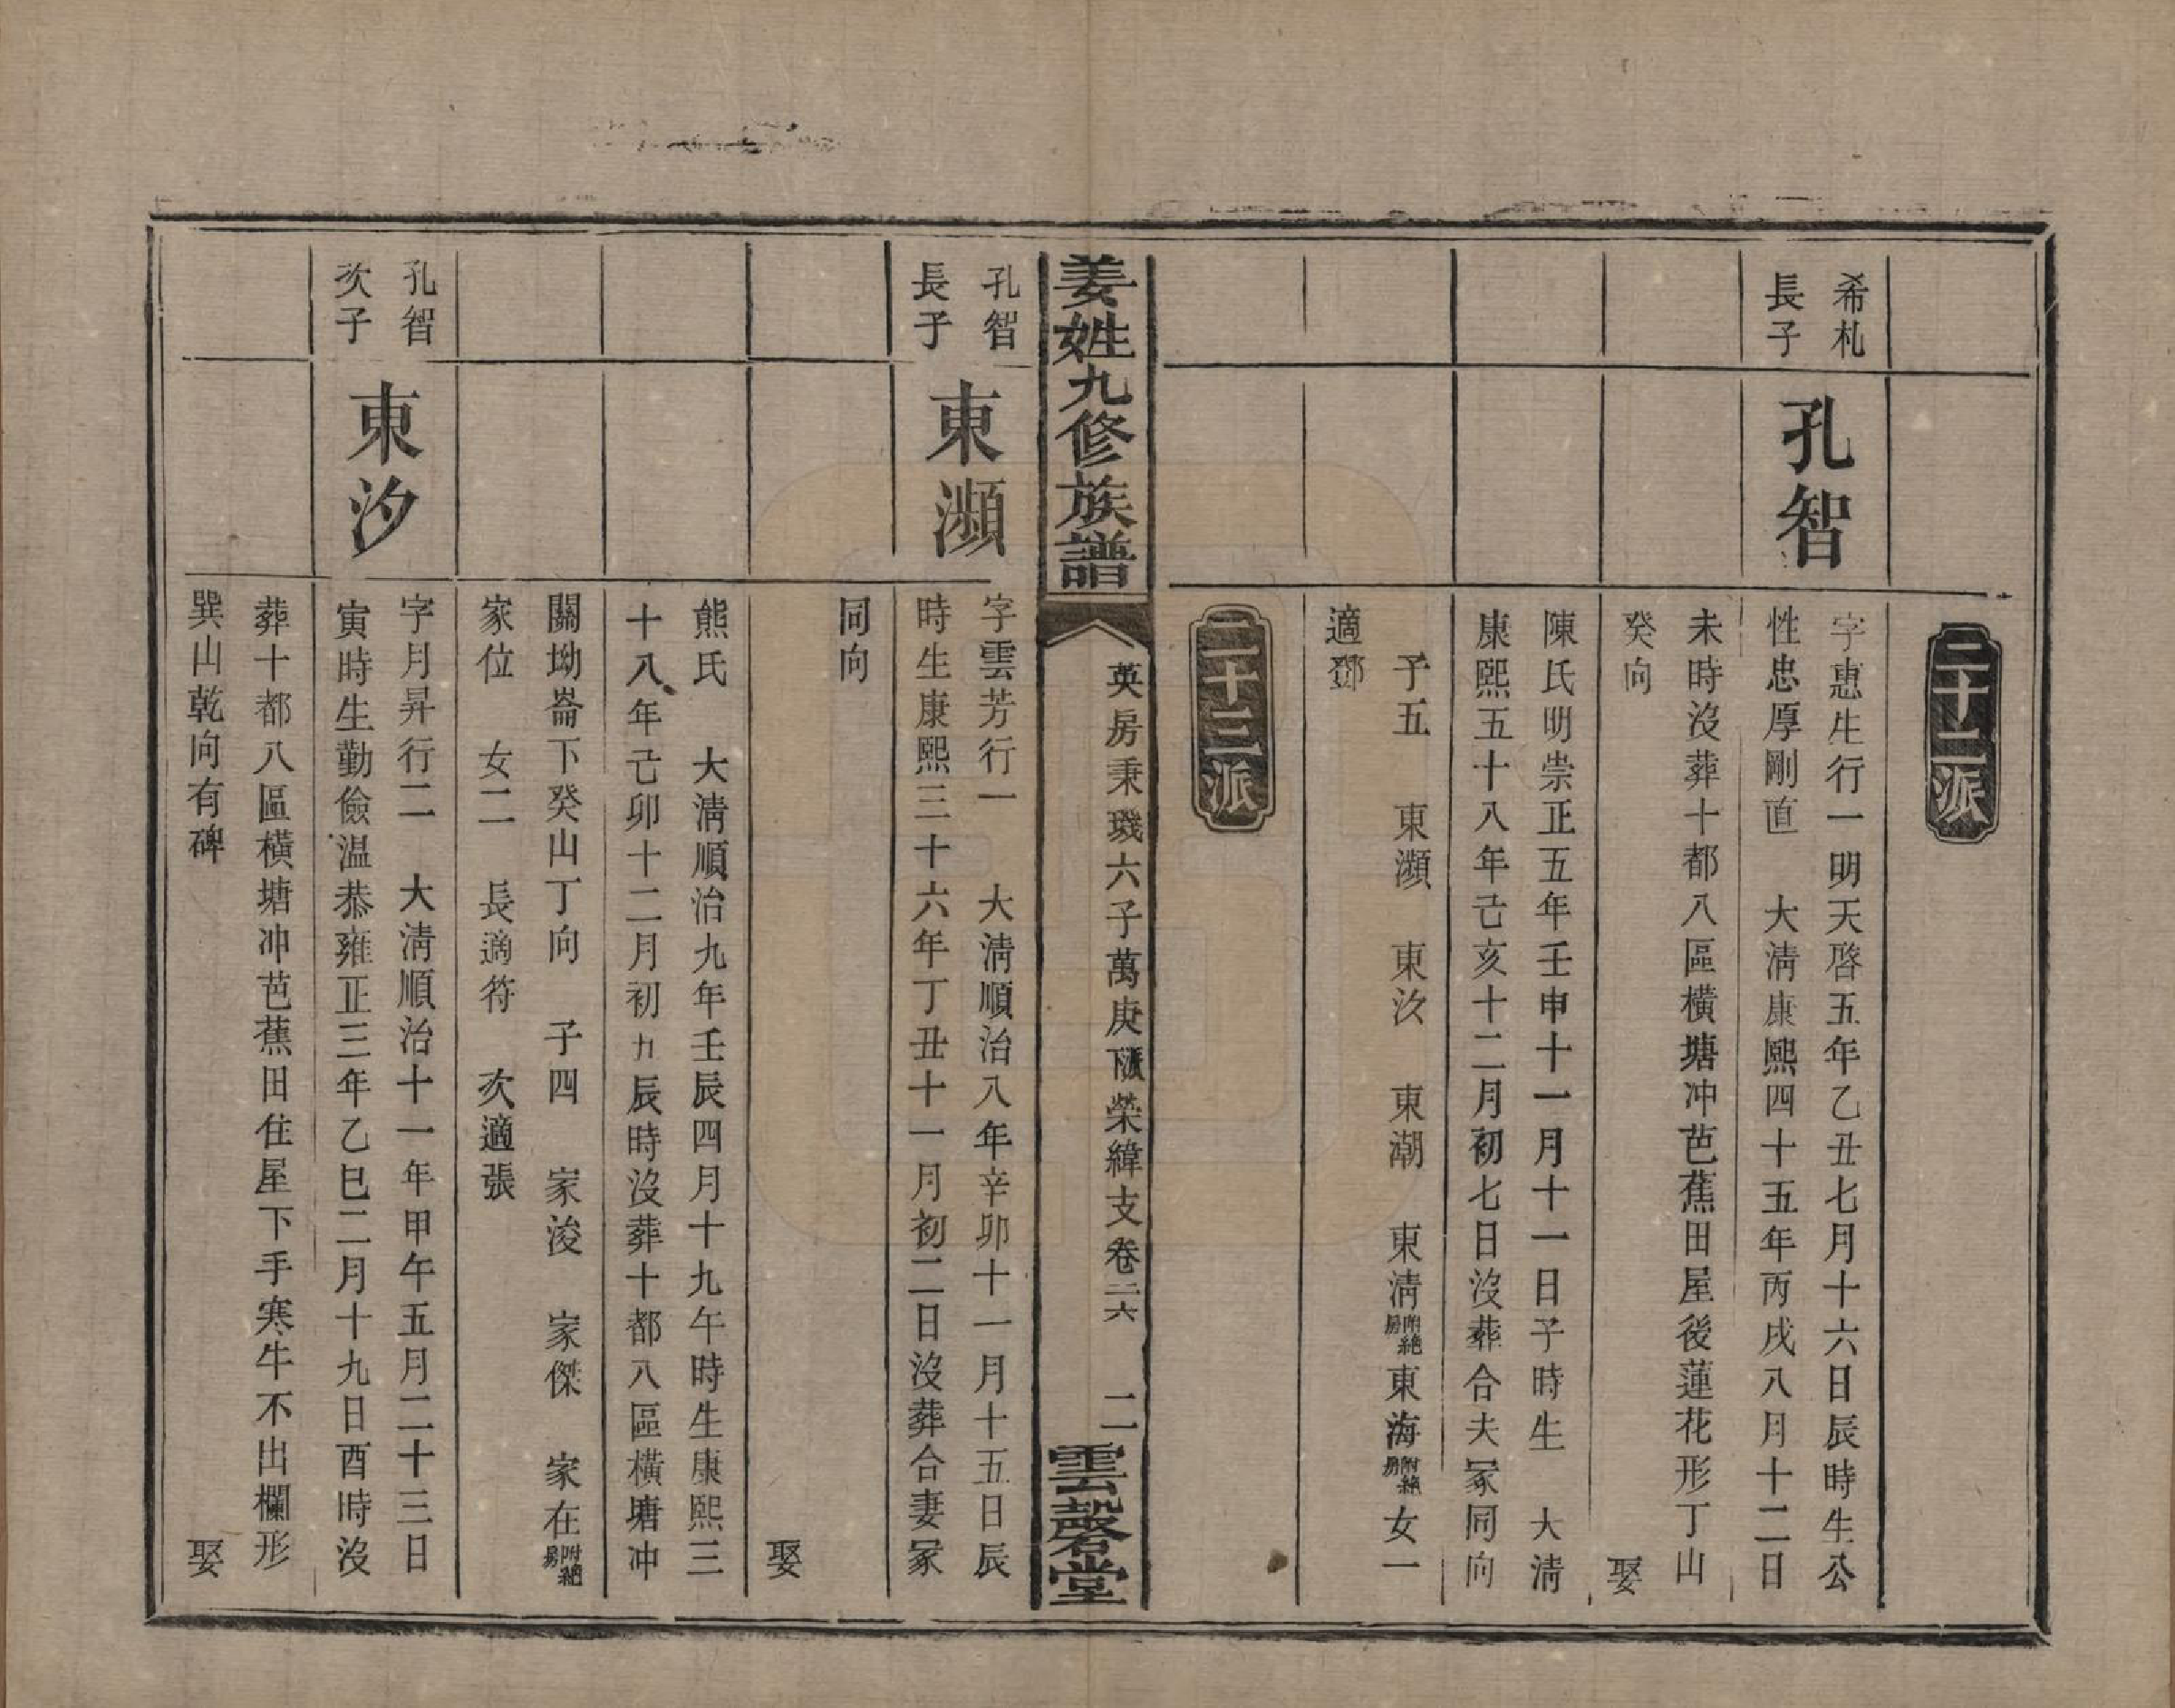 二十二派
希札
長子
孔智
字惠生行一明天啓五年乙丑七月十六日辰時生公
性忠厚剛直 大清康熙四十五年丙戌八月十二日
未時沒葬十都八區橫塘冲芭蕉田屋後蓮花形丁山
癸向 娶
陳氏明崇正五年壬申十一月十一日子時生 大清
康熙五十八年己亥十二月初七日沒葬合夫冢同向
子五 東瀕 東汐 東潮 東清附絕房 東海附絕房 女一
適鄧
二十三派
姜姓九修族譜
英房秉璣六子萬庚 榮緯支卷二六 二
雲磬堂
孔智
長子
東瀕
字雲芳行一 大清順治八年辛卯十一月十五日辰
時生康熙三十六年丁丑十一月初二日沒葬合妻冢
同向
娶
熊氏 大清順治九年壬辰四月十九午時生康熙三
十八年己卯十二月初九辰時沒葬十都八區橫塘冲
關坳崙下癸山丁向 子四 家浚 家傑 家在附絕房
家位 女二 長適符 次適張
孔智
次子
東汐
字月昇行二 大清順治十一年甲午五月二十三日
寅時生勤儉温恭雍正三年乙巳二月十九日酉時沒
葬十都八區橫塘冲芭蕉田住屋下手寒牛不出欄形
巽山乾向有碑 娶